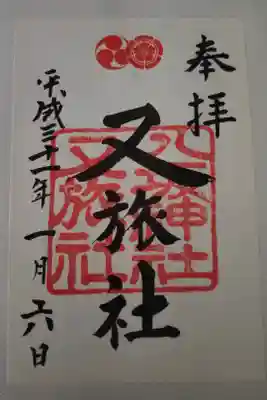 奉拝
又旅社
八坂神社
又旅社
平成三十一年一月六日